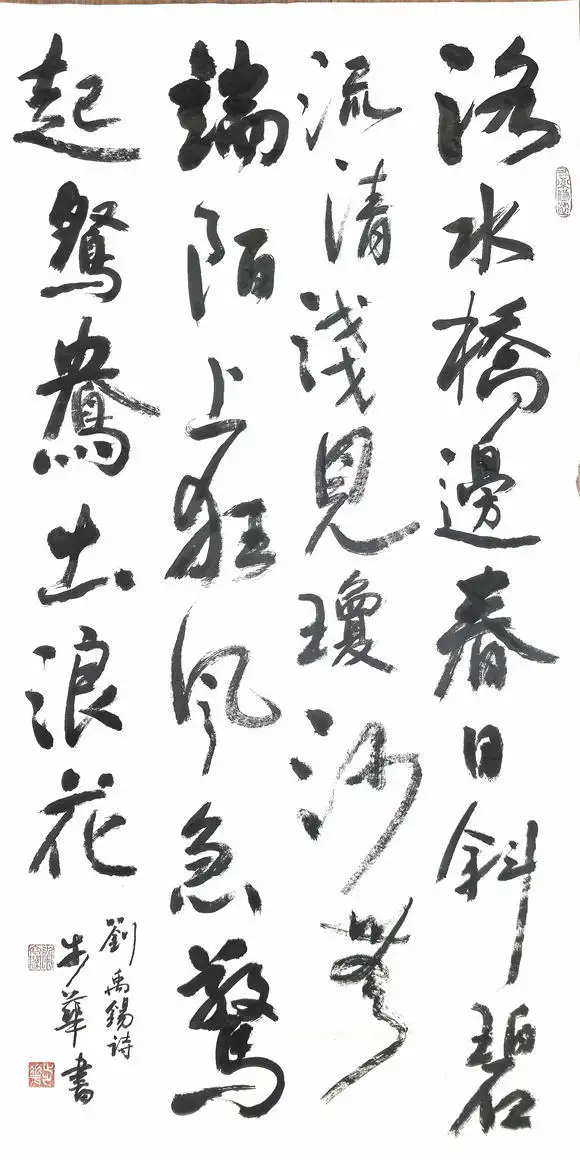 洛水橋邊春日斜碧
流清淺見瓊沙無
端陌上狂风急驚
起鴛鴦出浪花
劉禹錫詩
步華書